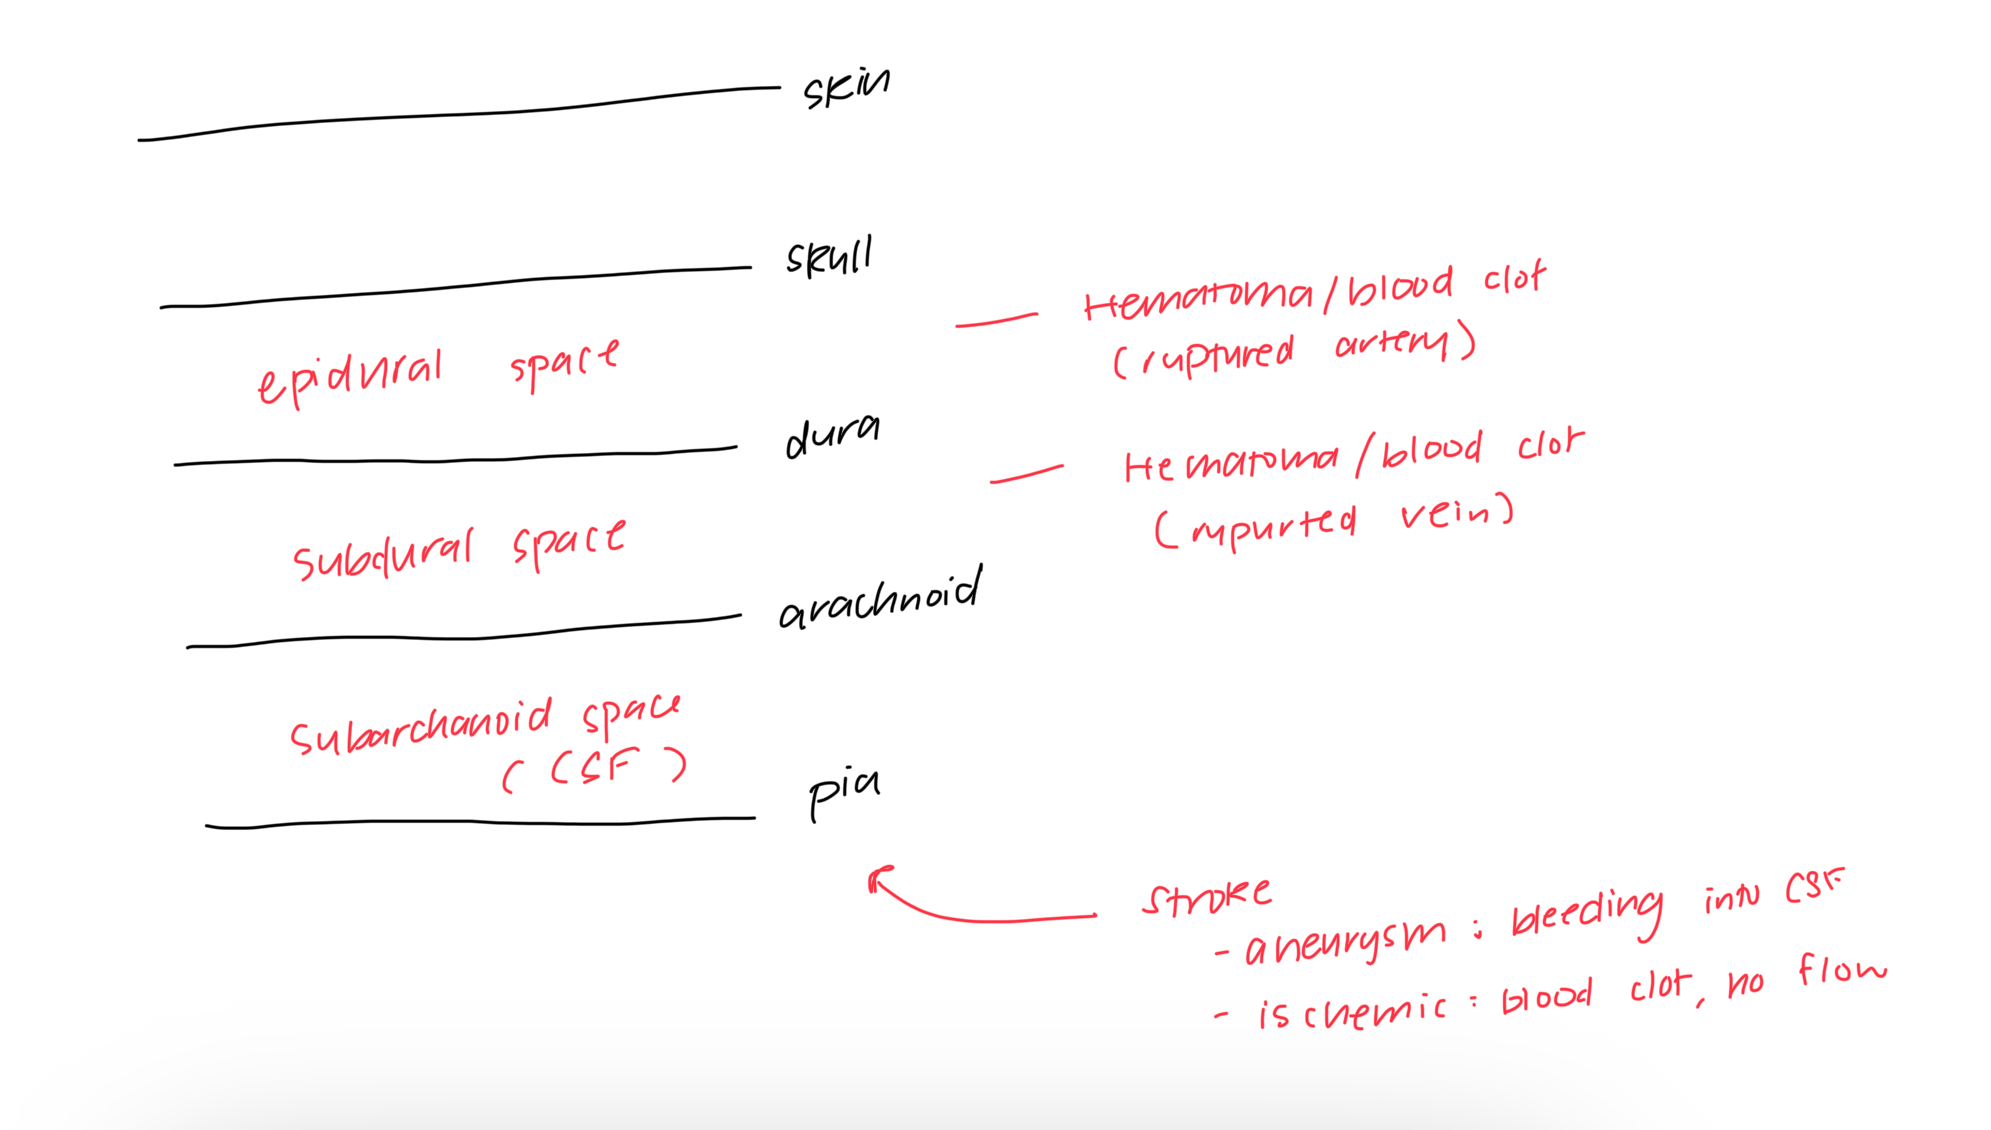 skin
skull
epidural space
Hematoma/blood clot
(ruptured artery)
dura
Hematoma/blood clot
(rupurted vein)
subdural space
arachnoid
subarchanoid space
(CSF)
pia
stroke
- aneurysm : bleeding into CSF
- ischemic : blood clot, no flow